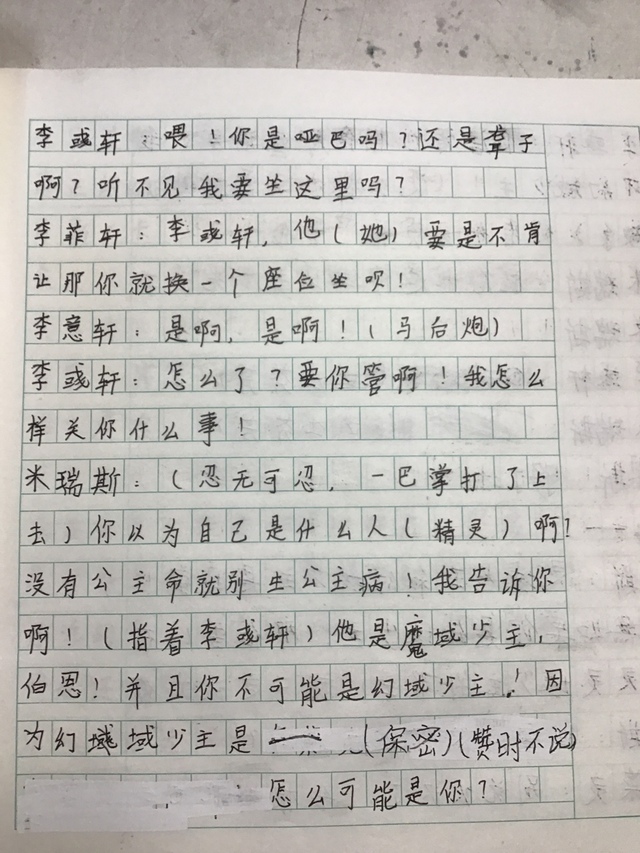 李彧轩：喂！你是哑巴吗？还是聋子
啊？听不见我要坐这里吗？
李菲轩：李彧轩，他（她）要是不肯
让那你就换一个座位坐呗！
李意轩：是啊，是啊！（马后炮）
李彧轩：怎么了？要你管啊！我怎么
样关你什么事！
米瑞斯：（忍无可忍，一巴掌打了上
去）你以为自己是什么人（精灵）啊？
没有公主命就别生公主病！我告诉你
啊！（指着李彧轩）他是魔域少主，
伯恩！并且你不可能是幻域少主！因
为幻域域少主是（保密）（赞时不说）
怎么可能是你？